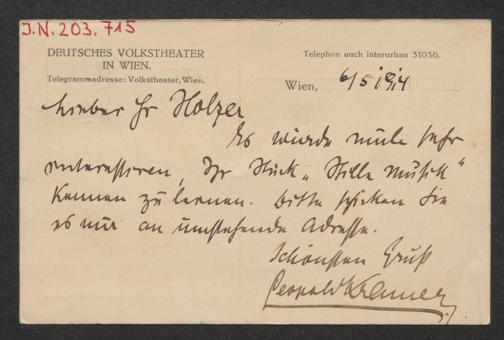 J.N. 203.715
DEUTSCHES VOLKSTHEATER
IN WIEN.
Telegrammadresse: Volkstheater, Wien.
Telephon auch interurban 31036.
Wien, 6/5 1914
Lieber Hr Holzer
Es würde mich sehr
interessieren, Ihr Stück „Stille Musik“
kennen zu lernen. Bitte schicken Sie
es mir an umstehende Adresse.
Schönsten Gruß
Leopold Kramer